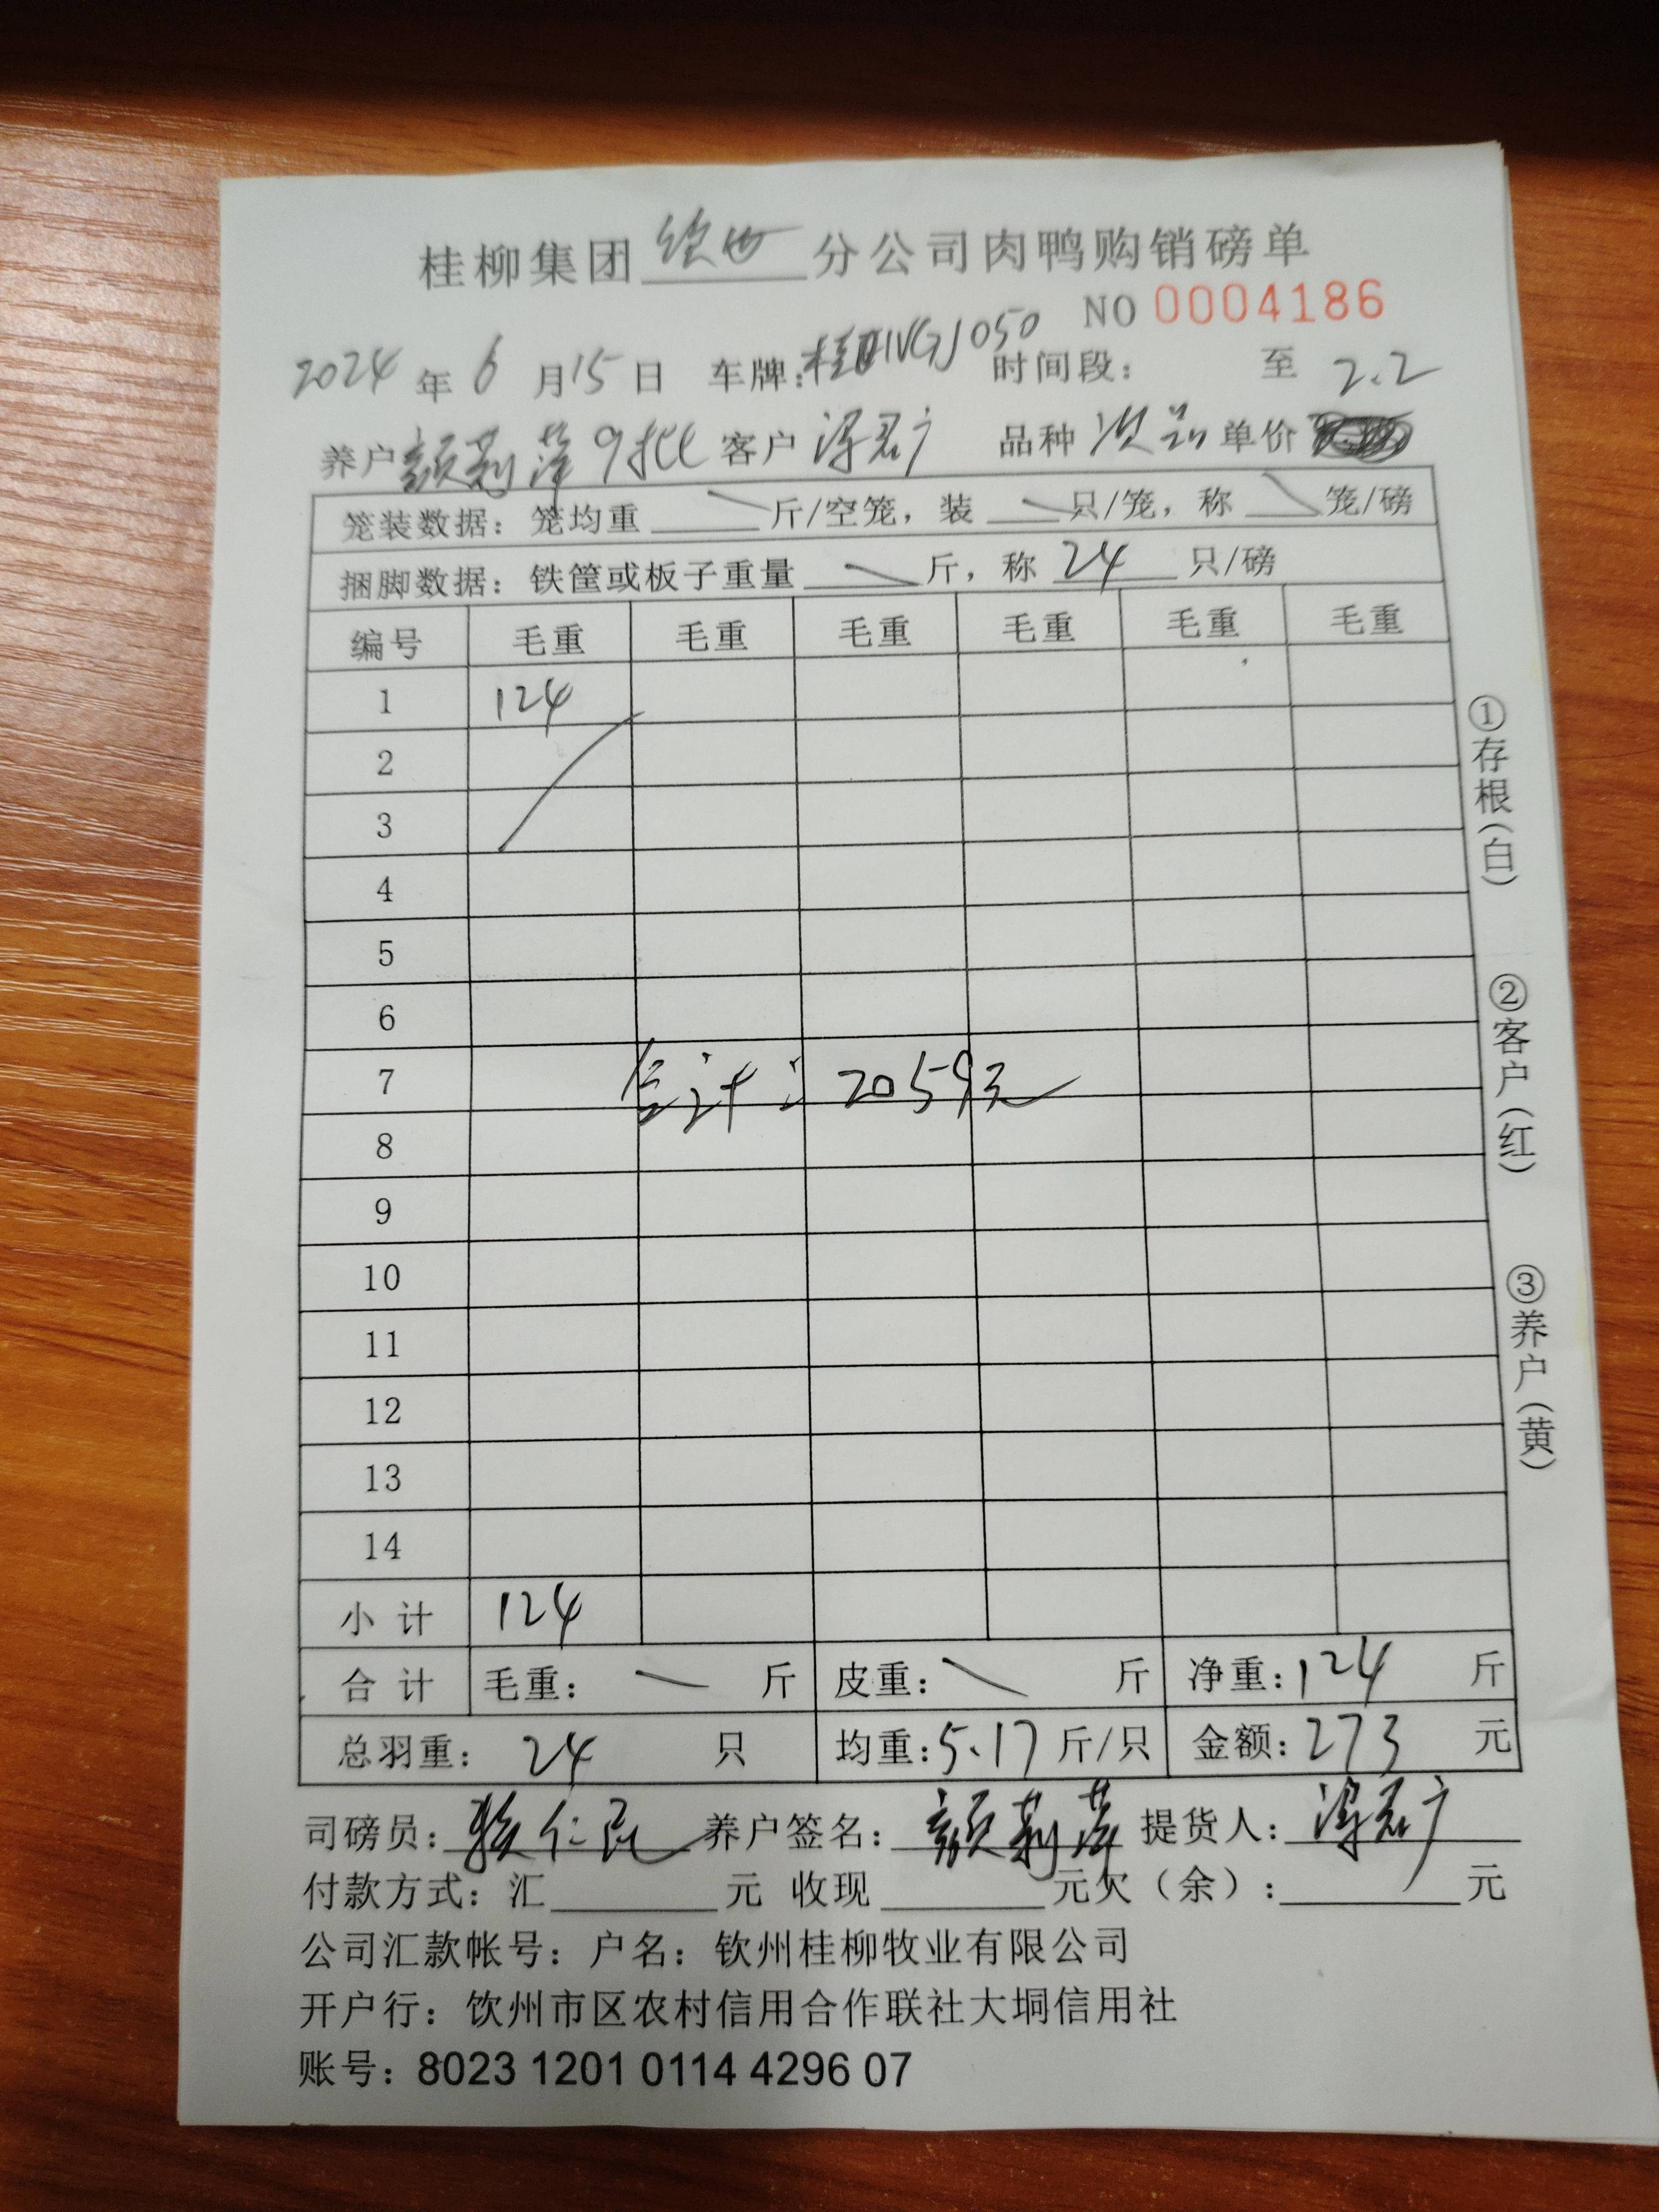 桂柳集团 分公司肉鸭购销磅单
NO 0004186
2024 年 6 月 15 日 车牌: 时间段: 至 2.2
养户 颜莉萍 9批 客户 品种 次品 单价
笼装数据: 笼均重 斤/空笼, 装 只/笼, 称 笼/磅
捆脚数据: 铁筐或板子重量 斤, 称 24 只/磅
编号 毛重 毛重 毛重 毛重 毛重 毛重
1 124
2
3
4
5
6
7 合计: 2059元
8
9
10
11
12
13
14
小计 124
合计 毛重: 斤 皮重: 斤 净重: 124 斤
总羽重: 24 只 均重: 5.17 斤/只 金额: 273 元
司磅员: 养户签名: 颜莉萍 提货人:
付款方式: 汇 元 收现 元欠（余）: 元
公司汇款帐号: 户名: 钦州桂柳牧业有限公司
开户行: 饮州市区农村信用合作联社大垌信用社
账号: 8023 1201 0114 4296 07
①存根(白)
②客户(红)
③养户(黄)